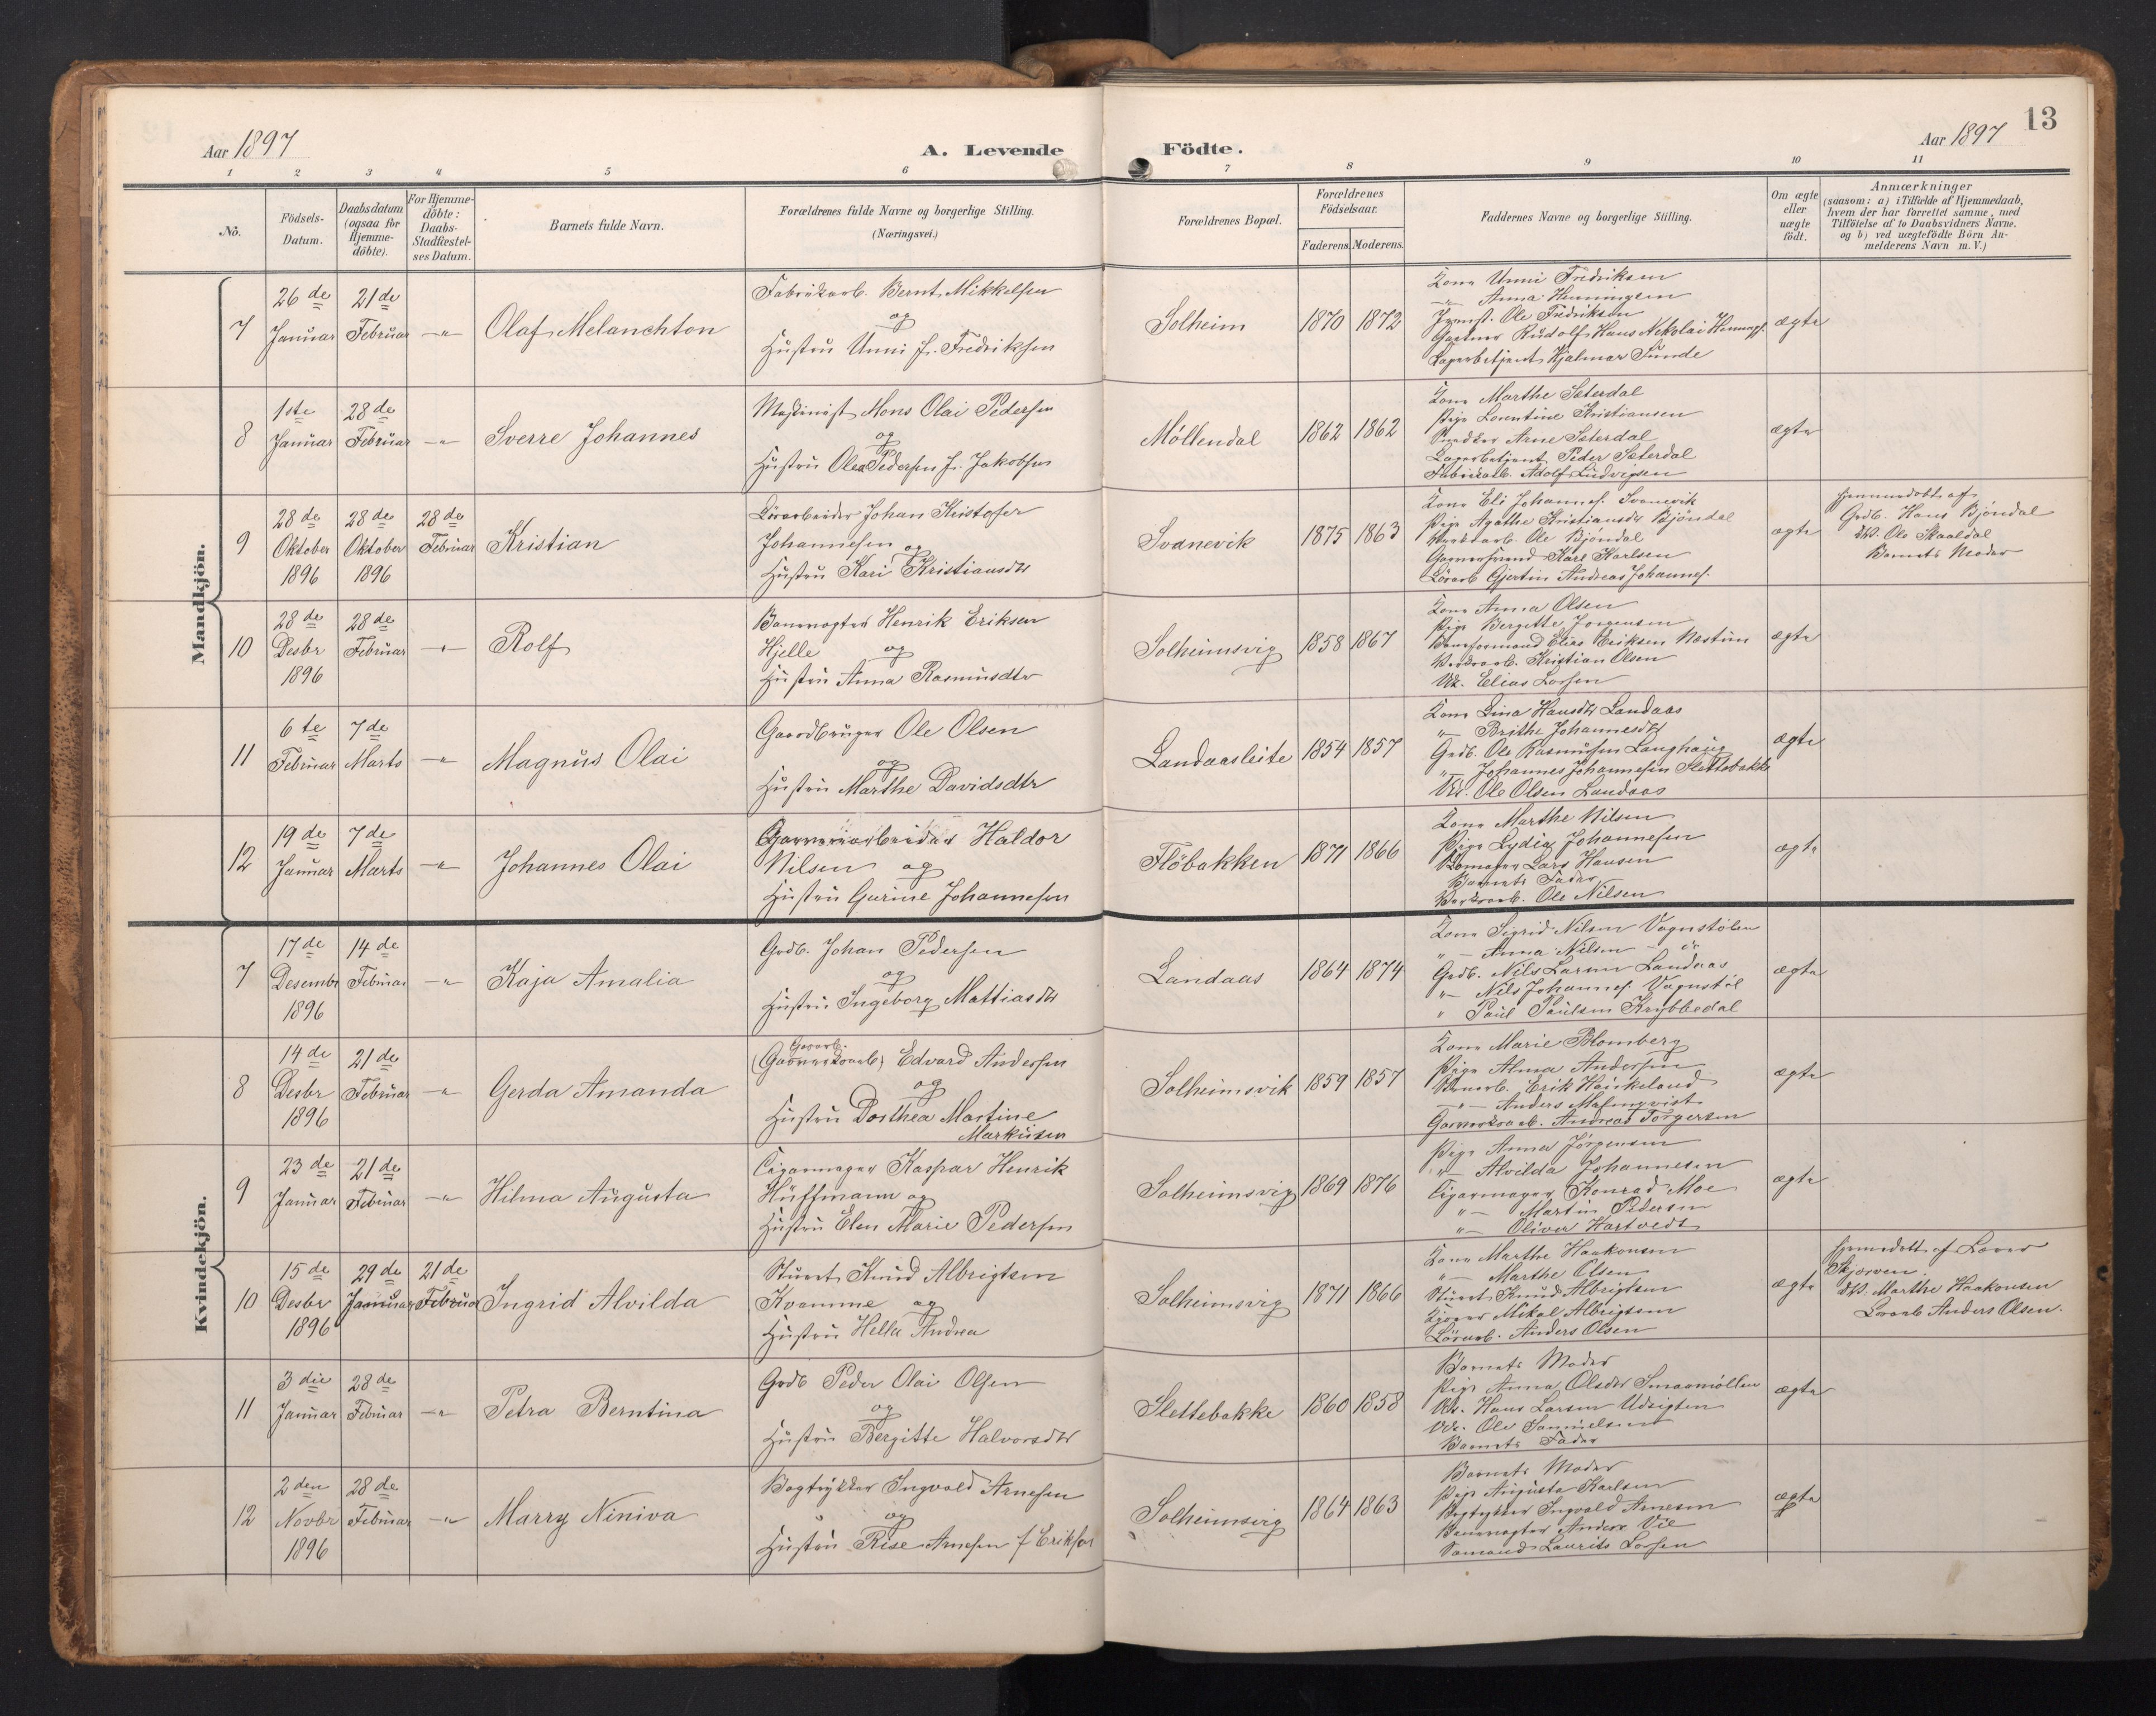 13
Aar 1897
A. Levende Födte.
Aar 1897
1 2 3 4 5 6 7 8 9 10 11
No.
Födsels-
Datum.
Daabsdatum
(ogsaa for
Hjemme-
döbte).
For Hjemme-
döbte:
Daabs-
Stadfæstel-
ses Datum.
Barnets fulde Navn.
Forældrenes fulde Navne og borgerlige Stilling.
(Næringsvei.)
Forældrenes Bopæl.
Forældrenes
Födselsaar.
Faderens. Moderens.
Faddernes Navne og borgerlige Stilling.
Om ægte
eller
uægte
födt.
Anmærkninger
(saasom: a) i Tilfælde af Hjemmedaab,
hvem der har forrettet samme, med
Tilföielse af to Daabsvidners Navne.
og b) ved uægtefödte Börn An-
melderens Navn m. V.)
Mandkjön.
7
26de
Januar
21de
Februar
-"-
Olaf Melanchton
Fabrikarb. Bernt Mikkelsen
og
Hustru Unni f. Fredriksen
Solheim
1870 1872
Kone Unni Fredriksen
-"- Anna Henningsen
Ole Fredriksen
Gartner Rudolf Hans Nikolai
Lagerbetjent Hjalmar Sunde
ægte
8
1ste
Januar
28de
Februar
-"-
Sverre Johannes
Maskinist Mons Olai Pedersen
og
Hustru Olea Pedersen f. Jakobsen
Möllendal
1862 1862
Kone Marthe Sæterdal
Pige Lorentine Kristiansen
Arne Sæterdal
Lagerbetjent Peder Sæterdal
Fabrikarb. Adolf Ludvigsen
ægte
9
28de
Oktober
1896
28de
Oktober
1896
28de
Februar
Kristian
Johan Kristofer
Johannesen
og
Hustru Kari Kristiansdtr
Svanevik
1875 1863
Kone Eli Johannes. Svanevik
Pige Agathe Kristiansdtr Bjöndal
Ole Bjöndal
Garversvend Karl Karlsen
Gjertin Andreas Johannes.
ægte
Hjemmedöbt af
Grdb. Hans Bjöndal
DV. Ole Skaaldal
Barnets Moder
10
28de
Desbr
1896
28de
Februar
-"-
Rolf
Banevogter Henrik Eriksen
Hjelle og
Hustru Anna Rasmusdtr
Solheimsvig
1858 1867
Kone Anna Olsen
Pige Bergitte Jörgensen
Baneformand Elias Eriksen Næstun
Kristian Olsen
Uk. Elias Larsen
ægte
11
6te
Februar
7de
Marts
-"-
Magnus Olai
Gaardbruger Ole Olsen
og
Hustru Marthe Davidsdtr
Landaasleite
1854 1857
Kone Lina Hansdtr Landaas
"- Brithe Johannesdtr
Grdb. Ole Rasmussen Langhaug
"- Johannes Johannesen Slettebakk
Uk. Ole Olsen Landaas
ægte
12
19de
Januar
7de
Marts
-"-
Johannes Olai
Garveriarbeider Haldor
Nilsen og
Hustru Gurine Johannesen
Flöbakken
1871 1866
Kone Marthe Nilsen
Pige Lydia Johannesen
Lars Hansen
Barnets Fader
Ole Nilsen
ægte
Kvindekjön.
7
17de
Desembr
1896
14de
Februar
-"-
Kaja Amalia
Grdb. Johan Pedersen
og
Hustru Ingeborg Mattiasdtr
Landaas
1864 1874
Kone Sigrid Nilsen Vognstölen
"- Anna Nilsen
Grdb. Nils Larsen Landaas
"- Nils Johannes. Vognstöl
" Paul Paulsen Krybbedal
ægte
8
14de
Desbr
1896
21de
Februar
-"-
Gerda Amanda
Edvard Andersen
og
Hustru Dorthea Martine
Markusen
Solheimsvik
1859 1857
Kone Marie Blomberg
Pige Alma Andersen
Erik Haukeland
-"- Anders Malmqvist
Andreas Torgersen
ægte
9
23de
Januar
21de
Februar
-"-
Hilma Augusta
Cigarmager Kaspar Henrik
Hüffmann og
Hustru Elen Marie Pedersen
Solheimsvig
1869 1876
Pige Anna Jörgensen
"- Alvilda Johannesen
Cigarmager Konrad Moe
"- Martin Pedersen
"- Oliver Hartvedt
ægte
10
15de
Desbr
1896
29de
Januar
21de
Februar
Ingrid Alvilda
Stuert Knud Albrigtsen
Kvamme og
Hustru Hella Andrea
Solheimsvig
1871 1866
Kone Marthe Haakonsen
"- Marthe Olsen
Stuert Knud Albrigtsen
Mikal Albrigtsen
Anders Olsen
ægte
Hjemmedöbt af Lærer
Skjerven.
DV. Marthe Haakonsen
Anders Olsen.
11
3die
Januar
28de
Februar
-"-
Petra Berntina
Grdb Peder Olai Olsen
og
Hustru Bergitte Halvorsdtr
Slettebakke
1860 1858
Barnets Moder
Pige Anna Olsdtr Smaamöllen
Uk. Hans Larsen Udsigten
Uk. Ole Samuelsen
Barnets Fader
ægte
12
2den
Novbr
1896
28de
Februar
-"-
Marry Niniva
Bogtrykker Ingvald Arnesen
og
Hustru Rise Arnesen f Eriksen
Solheimsvig
1864 1863
Barnets Moder
Pige Augusta Karlsen
Bogtrykker Ingvald Arnesen
Banevogter Anders Vie
Sömand Laurits Larsen
ægte